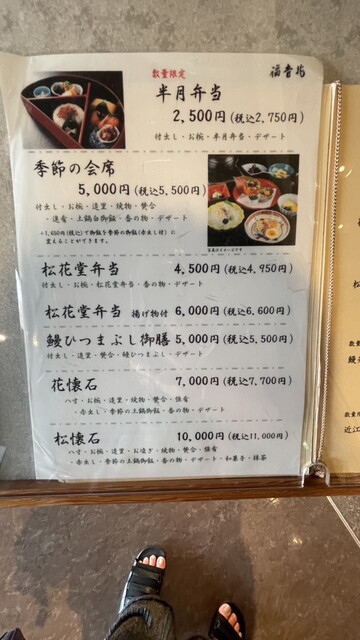 数量限定
半月弁当
2,500円(税込2,750円)
付出し・お椀・半月弁当・デザート
季節の会席
5,000円(税込5,500円)
付出し・お椀・造里・焼物・焚合
・進肴・土鍋白御飯・香の物・デザート
写真はイメージです
松花堂弁当 4,500円(税込4,950円)
付出し・お椀・松花堂弁当・香の物・デザート
松花堂弁当 揚げ物付 6,000円(税込6,600円)
鰻ひつまぶし御膳 5,000円(税込5,500円)
付出し・造里・焚合・鰻ひつまぶし・デザート
花懐石 7,000円(税込7,700円)
八寸・お椀・造里・焼物・焚合・強肴
・赤出し・季節の土鍋御飯・香の物・デザート
松懐石 10,000円(税込11,000円)
八寸・お椀・造里・お凌ぎ・焼物・焚合・強肴
・赤出し・季節の土鍋御飯・香の物・デザート・和菓子・抹茶
松
鰻
近江